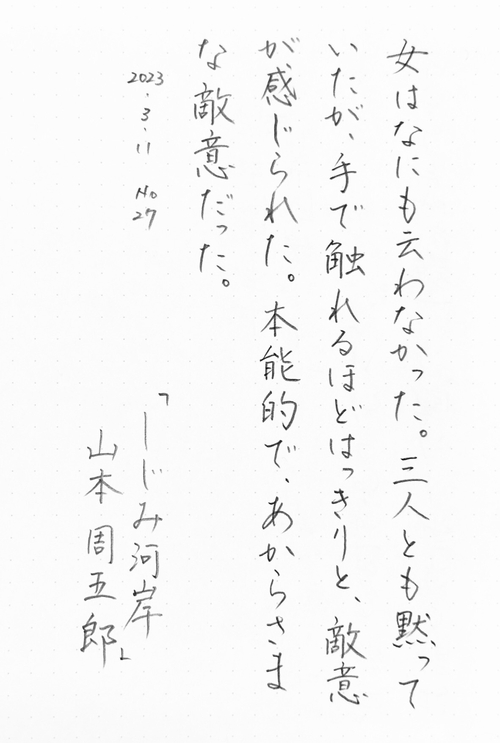 女はなにも云わなかった。三人とも黙って
いたが、手で触れるほどはっきりと、敵意
が感じられた。本能的で、あからさま
な敵意だった。
2023・3・11 No27
「しじみ河岸
山本周五郎」